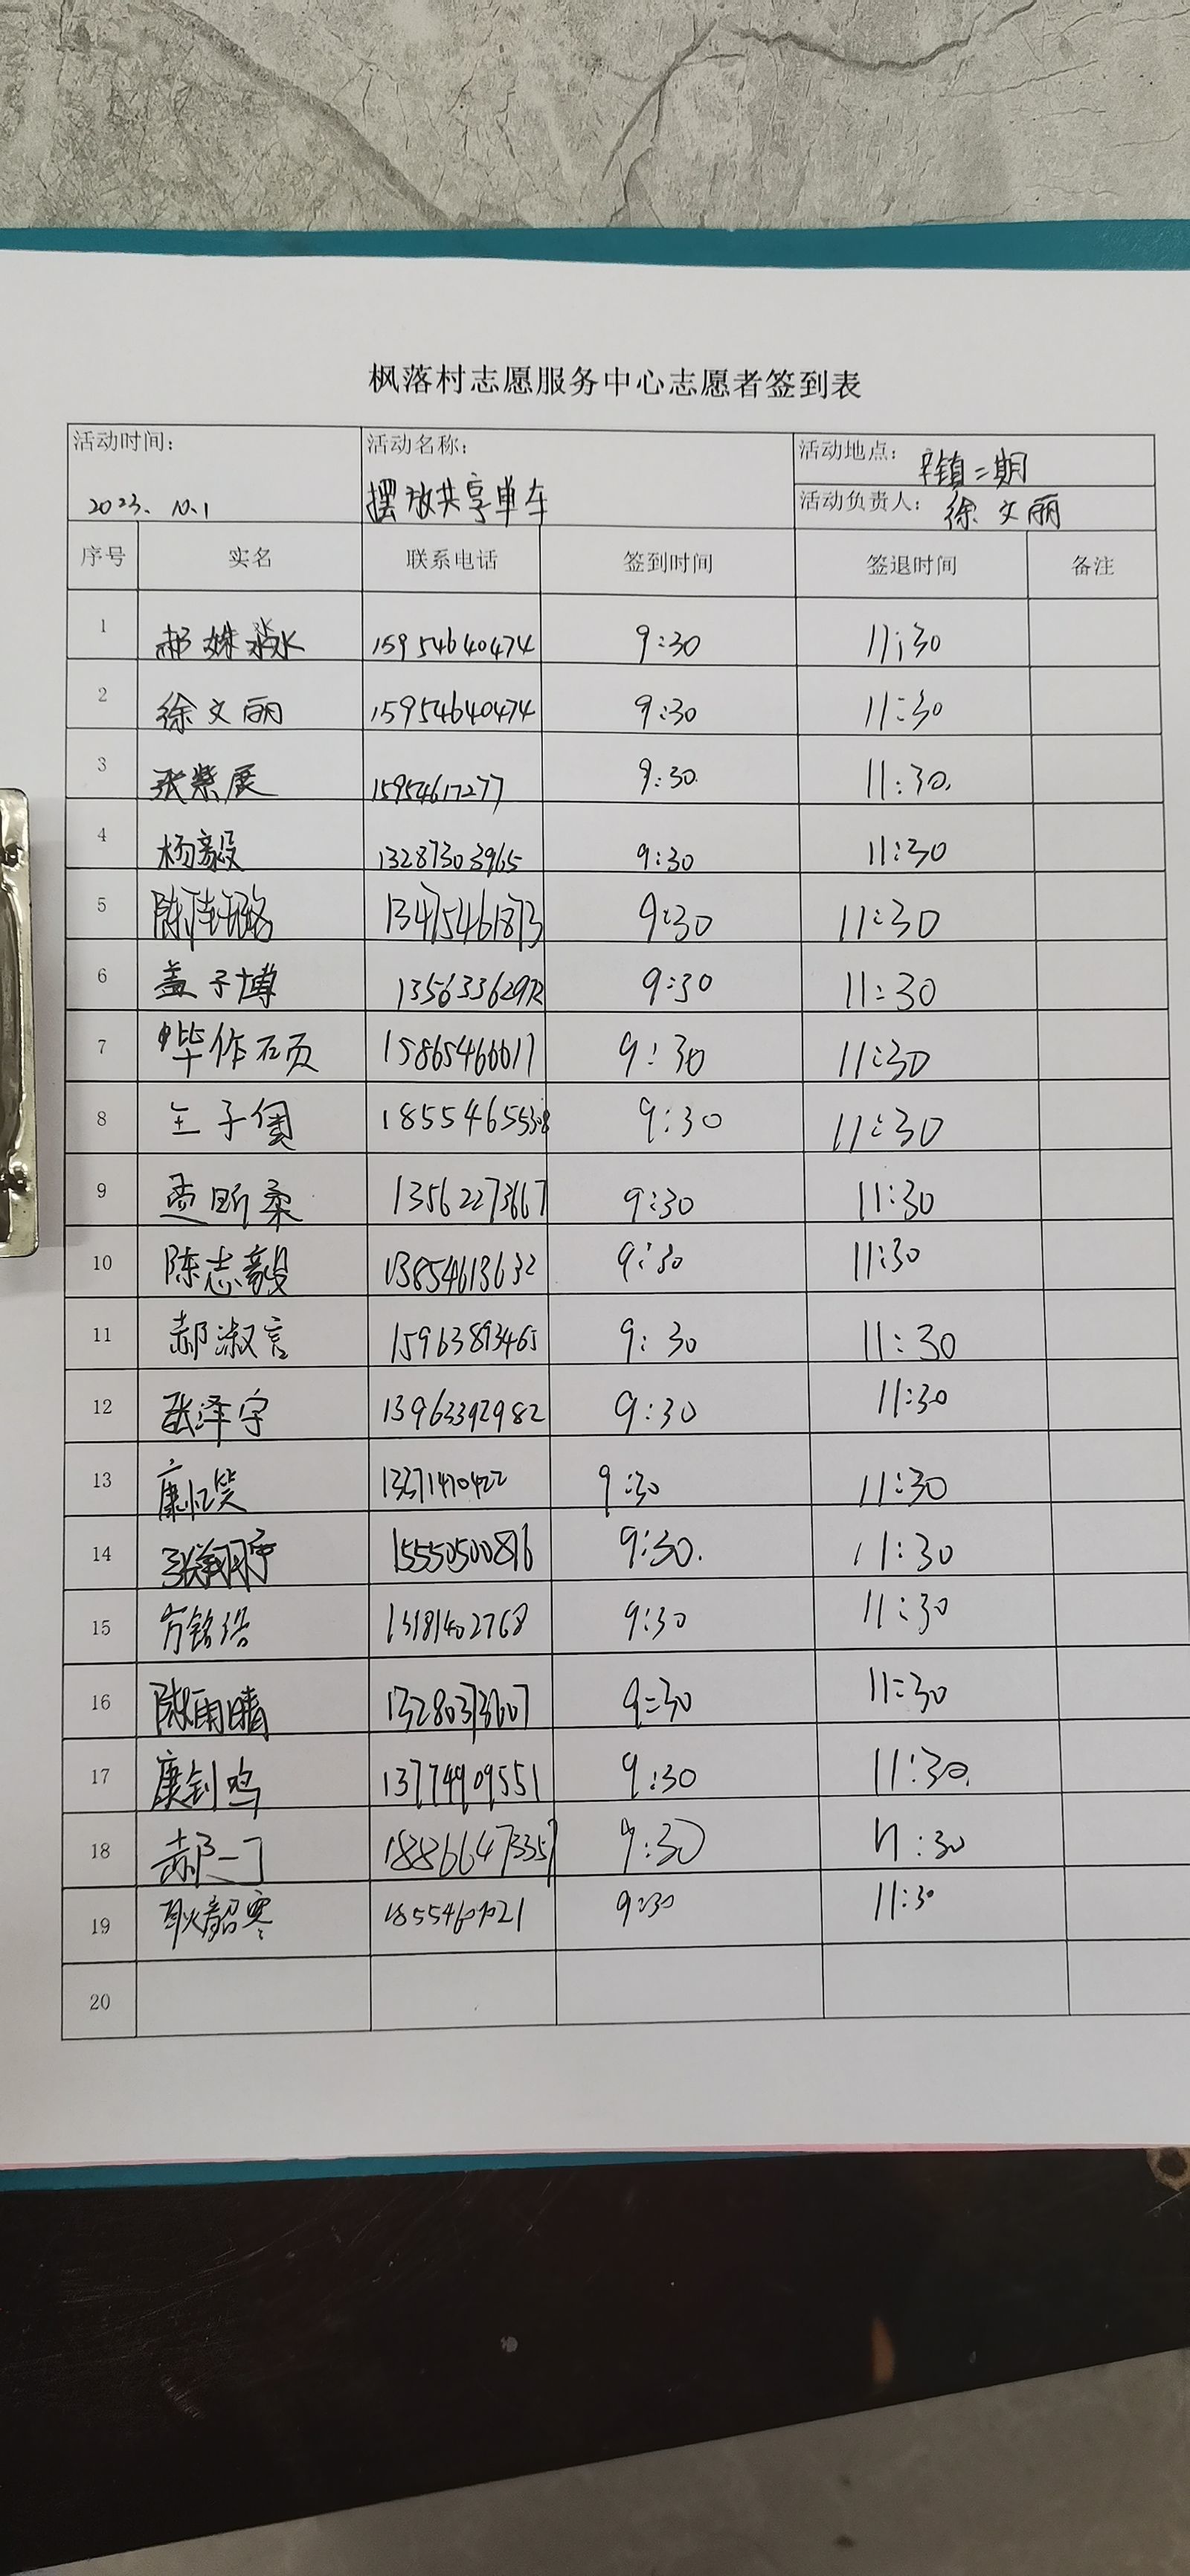 枫落村志愿服务中心志愿者签到表
活动时间: 2023.10.1 活动名称: 摆放共享单车 活动地点: 镇二期
活动负责人: 徐文丽
序号 实名 联系电话 签到时间 签退时间 备注
1 郝姝淼 15954640474 9:30 11:30
2 徐文丽 15954640474 9:30 11:30
3 张紫展 15954617277 9:30 11:30
4 杨毅 13287303965 9:30 11:30
5 陈 13475461873 9:30 11:30
6 盖子博 13563362972 9:30 11:30
7 毕作硕 15865466617 9:30 11:30
8 王子 18554655308 9:30 11:30
9 昕柔 13562273667 9:30 11:30
10 陈志毅 13854613632 9:30 11:30
11 郝淑言 15963893465 9:30 11:30
12 张泽宇 13963392982 9:30 11:30
13 康 9:30 11:30
14 张翔宇 15550500876 9:30 11:30
15 方铭浩 9:30 11:30
16 陈雨晴 13280373607 9:30 11:30
17 康钊鸣 13774909551 9:30 11:30
18 郝一 18866473357 9:30 11:30
19 耿韶寒 9:30 11:30
20